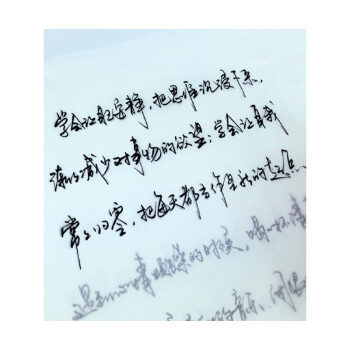 学会让自己安静，把思维沉浸下来，
渐渐减少对事物的欲望；学会让自我
常常归零，把每天都当作是新的起点
遇到心事烦燥的时候，喝一杯清
音乐，闭